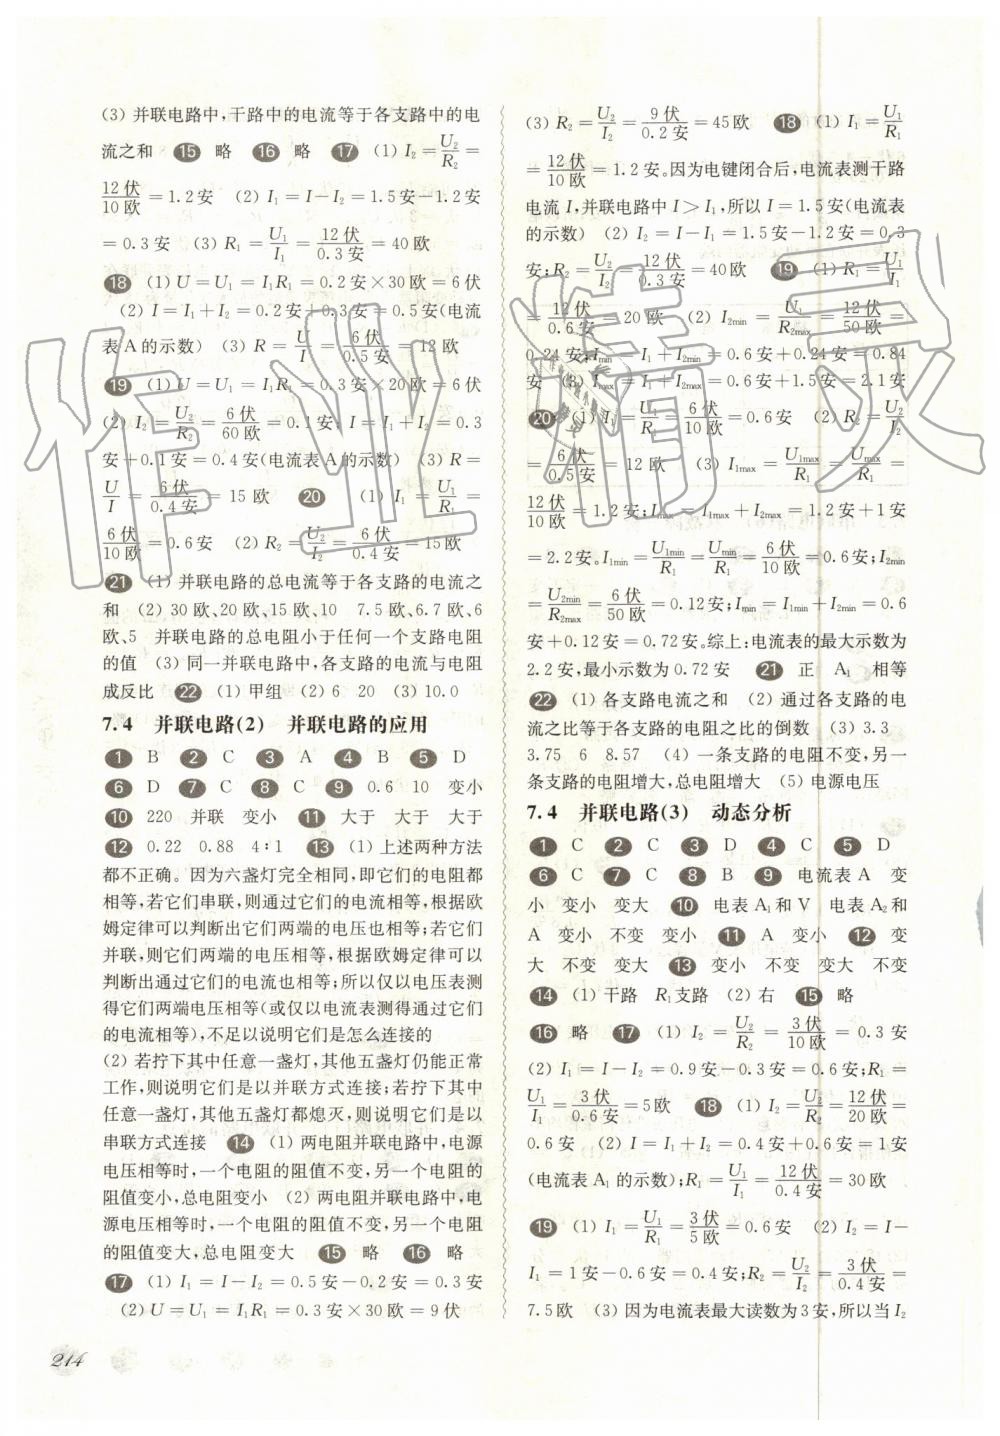 (3) 并联电路中,干路中的电流等于各支路中的电
流之和 15 略 16 略 17 (1) I₂=U₂/R₂=
12伏/10欧=1.2安 (2) I₁=I-I₂=1.5安-1.2安
=0.3安 (3) R₁=U₁/I₁=12伏/0.3安=40欧
18 (1) U=U₁=I₁R₁=0.2安×30欧=6伏
(2) I=I₁+I₂=0.2安+0.3安=0.5安(电流
表A的示数) (3) R=U/I=6伏/0.5安=12欧
19 (1) U=U₁=I₁R₁=0.3安×20欧=6伏
(2) I₂=U₂/R₂=6伏/60欧=0.1安; I=I₁+I₂=0.3
安+0.1安=0.4安(电流表A的示数) (3) R=
U/I=6伏/0.4安=15欧 20 (1) I₁=U₁/R₁=
6伏/10欧=0.6安 (2) R₂=U₂/I₂=6伏/0.4安=15欧
21 (1) 并联电路的总电流等于各支路的电流之
和 (2) 30欧、20欧、15欧、10 7.5欧、6.7欧、6
欧、5 并联电路的总电阻小于任何一个支路电阻
的值 (3) 同一并联电路中,各支路的电流与电阻
成反比 22 (1) 甲组 (2) 6 20 (3) 10.0
7.4 并联电路(2) 并联电路的应用
1 B 2 C 3 A 4 B 5 D
6 D 7 C 8 C 9 0.6 10 变小
10 220 并联 变小 11 大于 大于 大于
12 0.22 0.88 4∶1 13 (1) 上述两种方法
都不正确。因为六盏灯完全相同,即它们的电阻都
相等,若它们串联,则通过它们的电流相等,根据欧
姆定律可以判断出它们两端的电压也相等;若它们
并联,则它们两端的电压相等,根据欧姆定律可以
判断出通过它们的电流也相等;所以仅以电压表测
得它们两端电压相等(或仅以电流表测得通过它们
的电流相等),不足以说明它们是怎么连接的
(2) 若拧下其中任意一盏灯,其他五盏灯仍能正常
工作,则说明它们是以并联方式连接;若拧下其中
任意一盏灯,其余五盏灯都熄灭,则说明它们是以
串联方式连接 14 (1) 两电阻并联电路中,电源
电压相等时,一个电阻的阻值不变,另一个电阻的
阻值变小,总电阻变小 (2) 两电阻并联电路中,电
源电压相等时,一个电阻的阻值不变,另一个电阻
的阻值变大,总电阻变大 15 略 16 略
17 (1) I₁=I-I₂=0.5安-0.2安=0.3安
(2) U=U₁=I₁R₁=0.3安×30欧=9伏
214
(3) R₂=U₂/I₂=9伏/0.2安=45欧 18 (1) I₁=U₁/R₁
=12伏/10欧=1.2安。因为电键闭合后,电流表测干路
电流I,并联电路中I>I₁,所以I=1.5安(电流表
的示数) (2) I₂=I-I₁=1.5安-1.2安=0.3
安;R₂=U₂/I₂=12伏/0.3安=40欧 19 (1) R₁=U₁/I₁
=12伏/0.6安=20欧 (2) I₂min=U₁/R₂max=12伏/50欧=
0.24安;Imin=I₁+I₂min=0.6安+0.24安=0.84
安 (3) Imax=I₁+I₂max=0.6安+1.5安=2.1安
20 (1) I₁=U₁/R₁=6伏/10欧=0.6安 (2) R₂=U₂/I₂
=6伏/0.5安=12欧 (3) I₁max=U₁max/R₁=Umax/R₁=
12伏/10欧=1.2安;Imax=I₁max+I₂max=1.2安+1安
=2.2安。I₁min=U₁min/R₁=Umin/R₁=6伏/10欧=0.6安;I₂min
=U₂min/R₂max=6伏/50欧=0.12安;Imin=I₁min+I₂min=0.6
安+0.12安=0.72安。综上:电流表的最大示数为
2.2安,最小示数为0.72安 21 正 A₁ 相等
22 (1) 各支路电流之和 (2) 通过各支路的电
流之比等于各支路的电阻之比的倒数 (3) 3.3
3.75 6 8.57 (4) 一条支路的电阻不变,另一
条支路的电阻增大,总电阻增大 (5) 电源电压
7.4 并联电路(3) 动态分析
1 C 2 C 3 D 4 C 5 D
6 C 7 C 8 B 9 电流表A 变
小 变小 变大 10 电表A₁和V 电表A₂和
A 变小 不变 变小 11 A 变小 12 变
大 不变 变大 13 变小 不变 变大 不变
14 (1) 干路 R₁支路 (2) 右 15 略
16 略 17 (1) I₂=U₂/R₂=3伏/10欧=0.3安
(2) I₁=I-I₂=0.9安-0.3安=0.6安;R₁=
U₁/I₁=3伏/0.6安=5欧 18 (1) I₂=U₂/R₂=12伏/20欧=
0.6安 (2) I=I₁+I₂=0.4安+0.6安=1安
(电流表A₁的示数);R₁=U₁/I₁=12伏/0.4安=30欧
19 (1) I₁=U₁/R₁=3伏/5欧=0.6安 (2) I₂=I-
I₁=1安-0.6安=0.4安;R₂=U₂/I₂=3伏/0.4安=
7.5欧 (3) 因为电流表最大读数为3安,所以当I₂
作业精灵